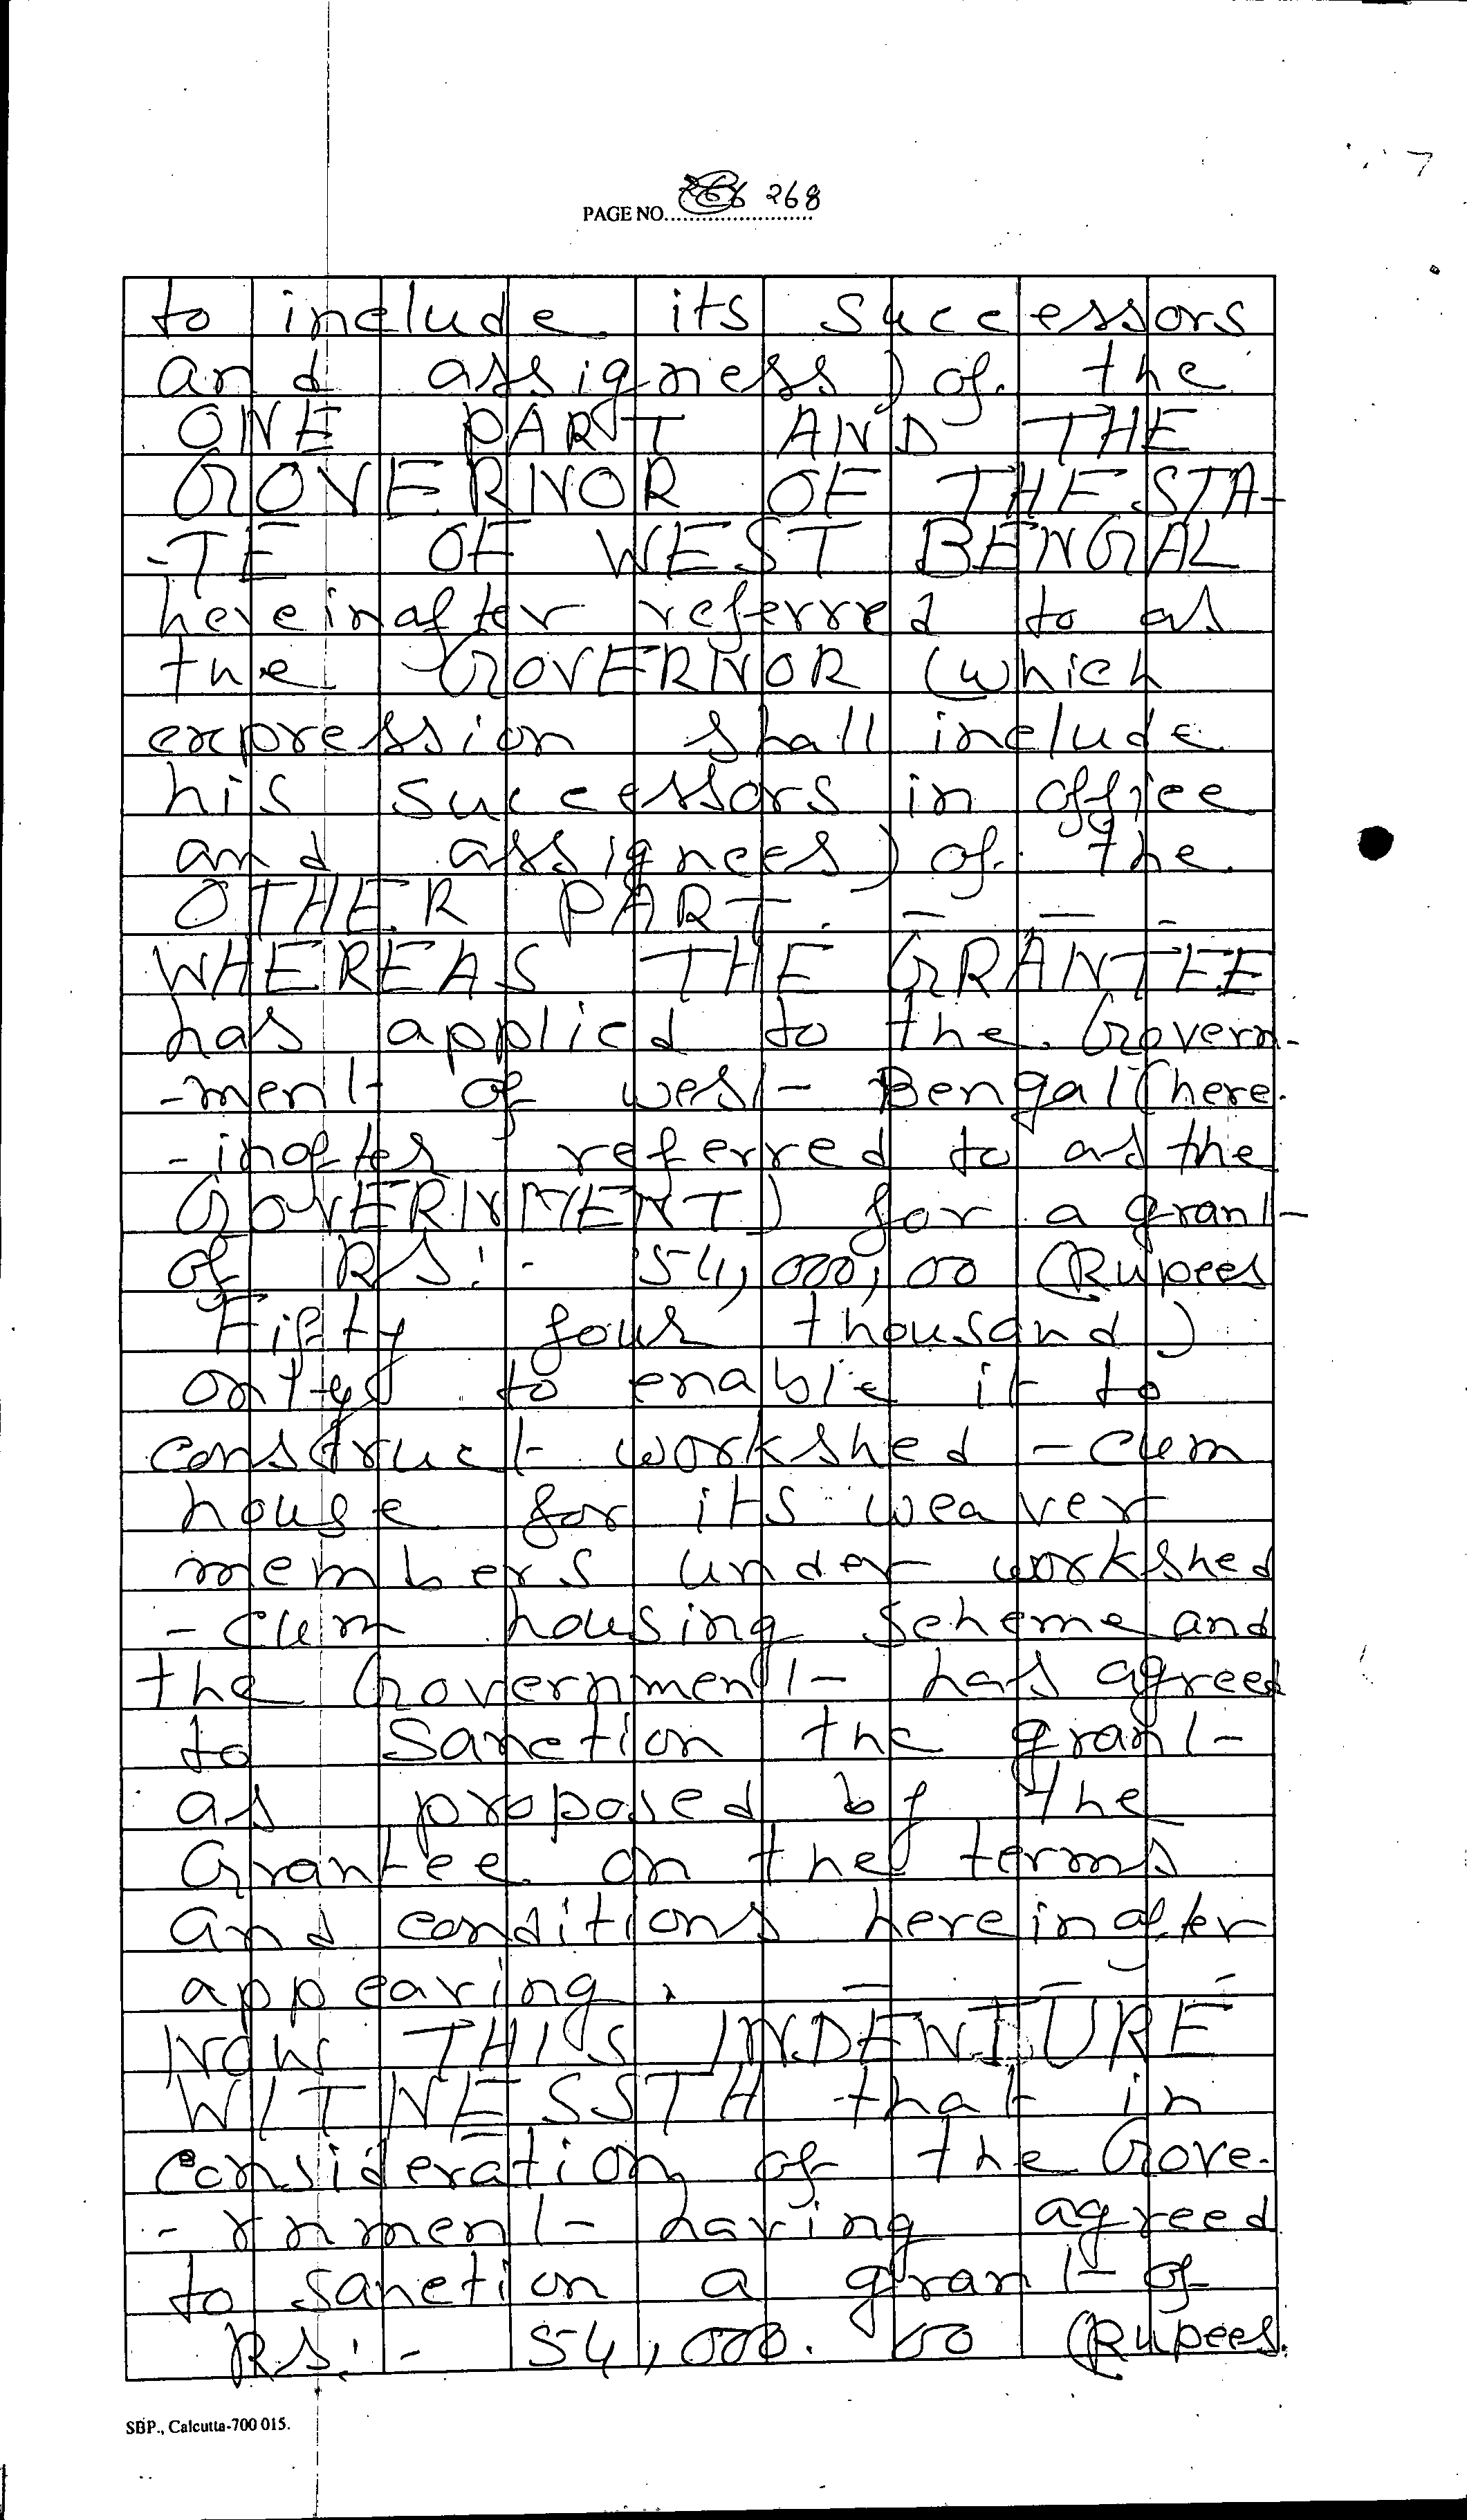 PAGE NO. 268
to include its successors
and assigness) of the
ONE PART AND THE
GOVERNOR OF THE STA-
-TE OF WEST BENGAL
hereinafter referred to as
the GOVERNOR (which
expression shall include
his successors in office
and assignees) of the
OTHER PART. - - -
WHEREAS THE GRANTEE
has applied to the Govern-
-ment of West Bengal (here-
-inafter referred to as the
GOVERNMENT) for a grant
of RS:- 54,000,00 (Rupees
Fifty four thousand)
only to enable it to
construct workshed -cum
house for its weaver
members under workshed
-cum housing scheme and
the Government has agreed
to sanction the grant
as proposed by the
Grantee on the terms
and conditions hereinafter
appearing. - - -
NOW THIS INDENTURE
WITNESSTH that in
consideration of the Gove-
-rnment having agreed
to sanction a grant of
RS:- 54,000.00 (Rupees
SBP., Calcutta-700 015.